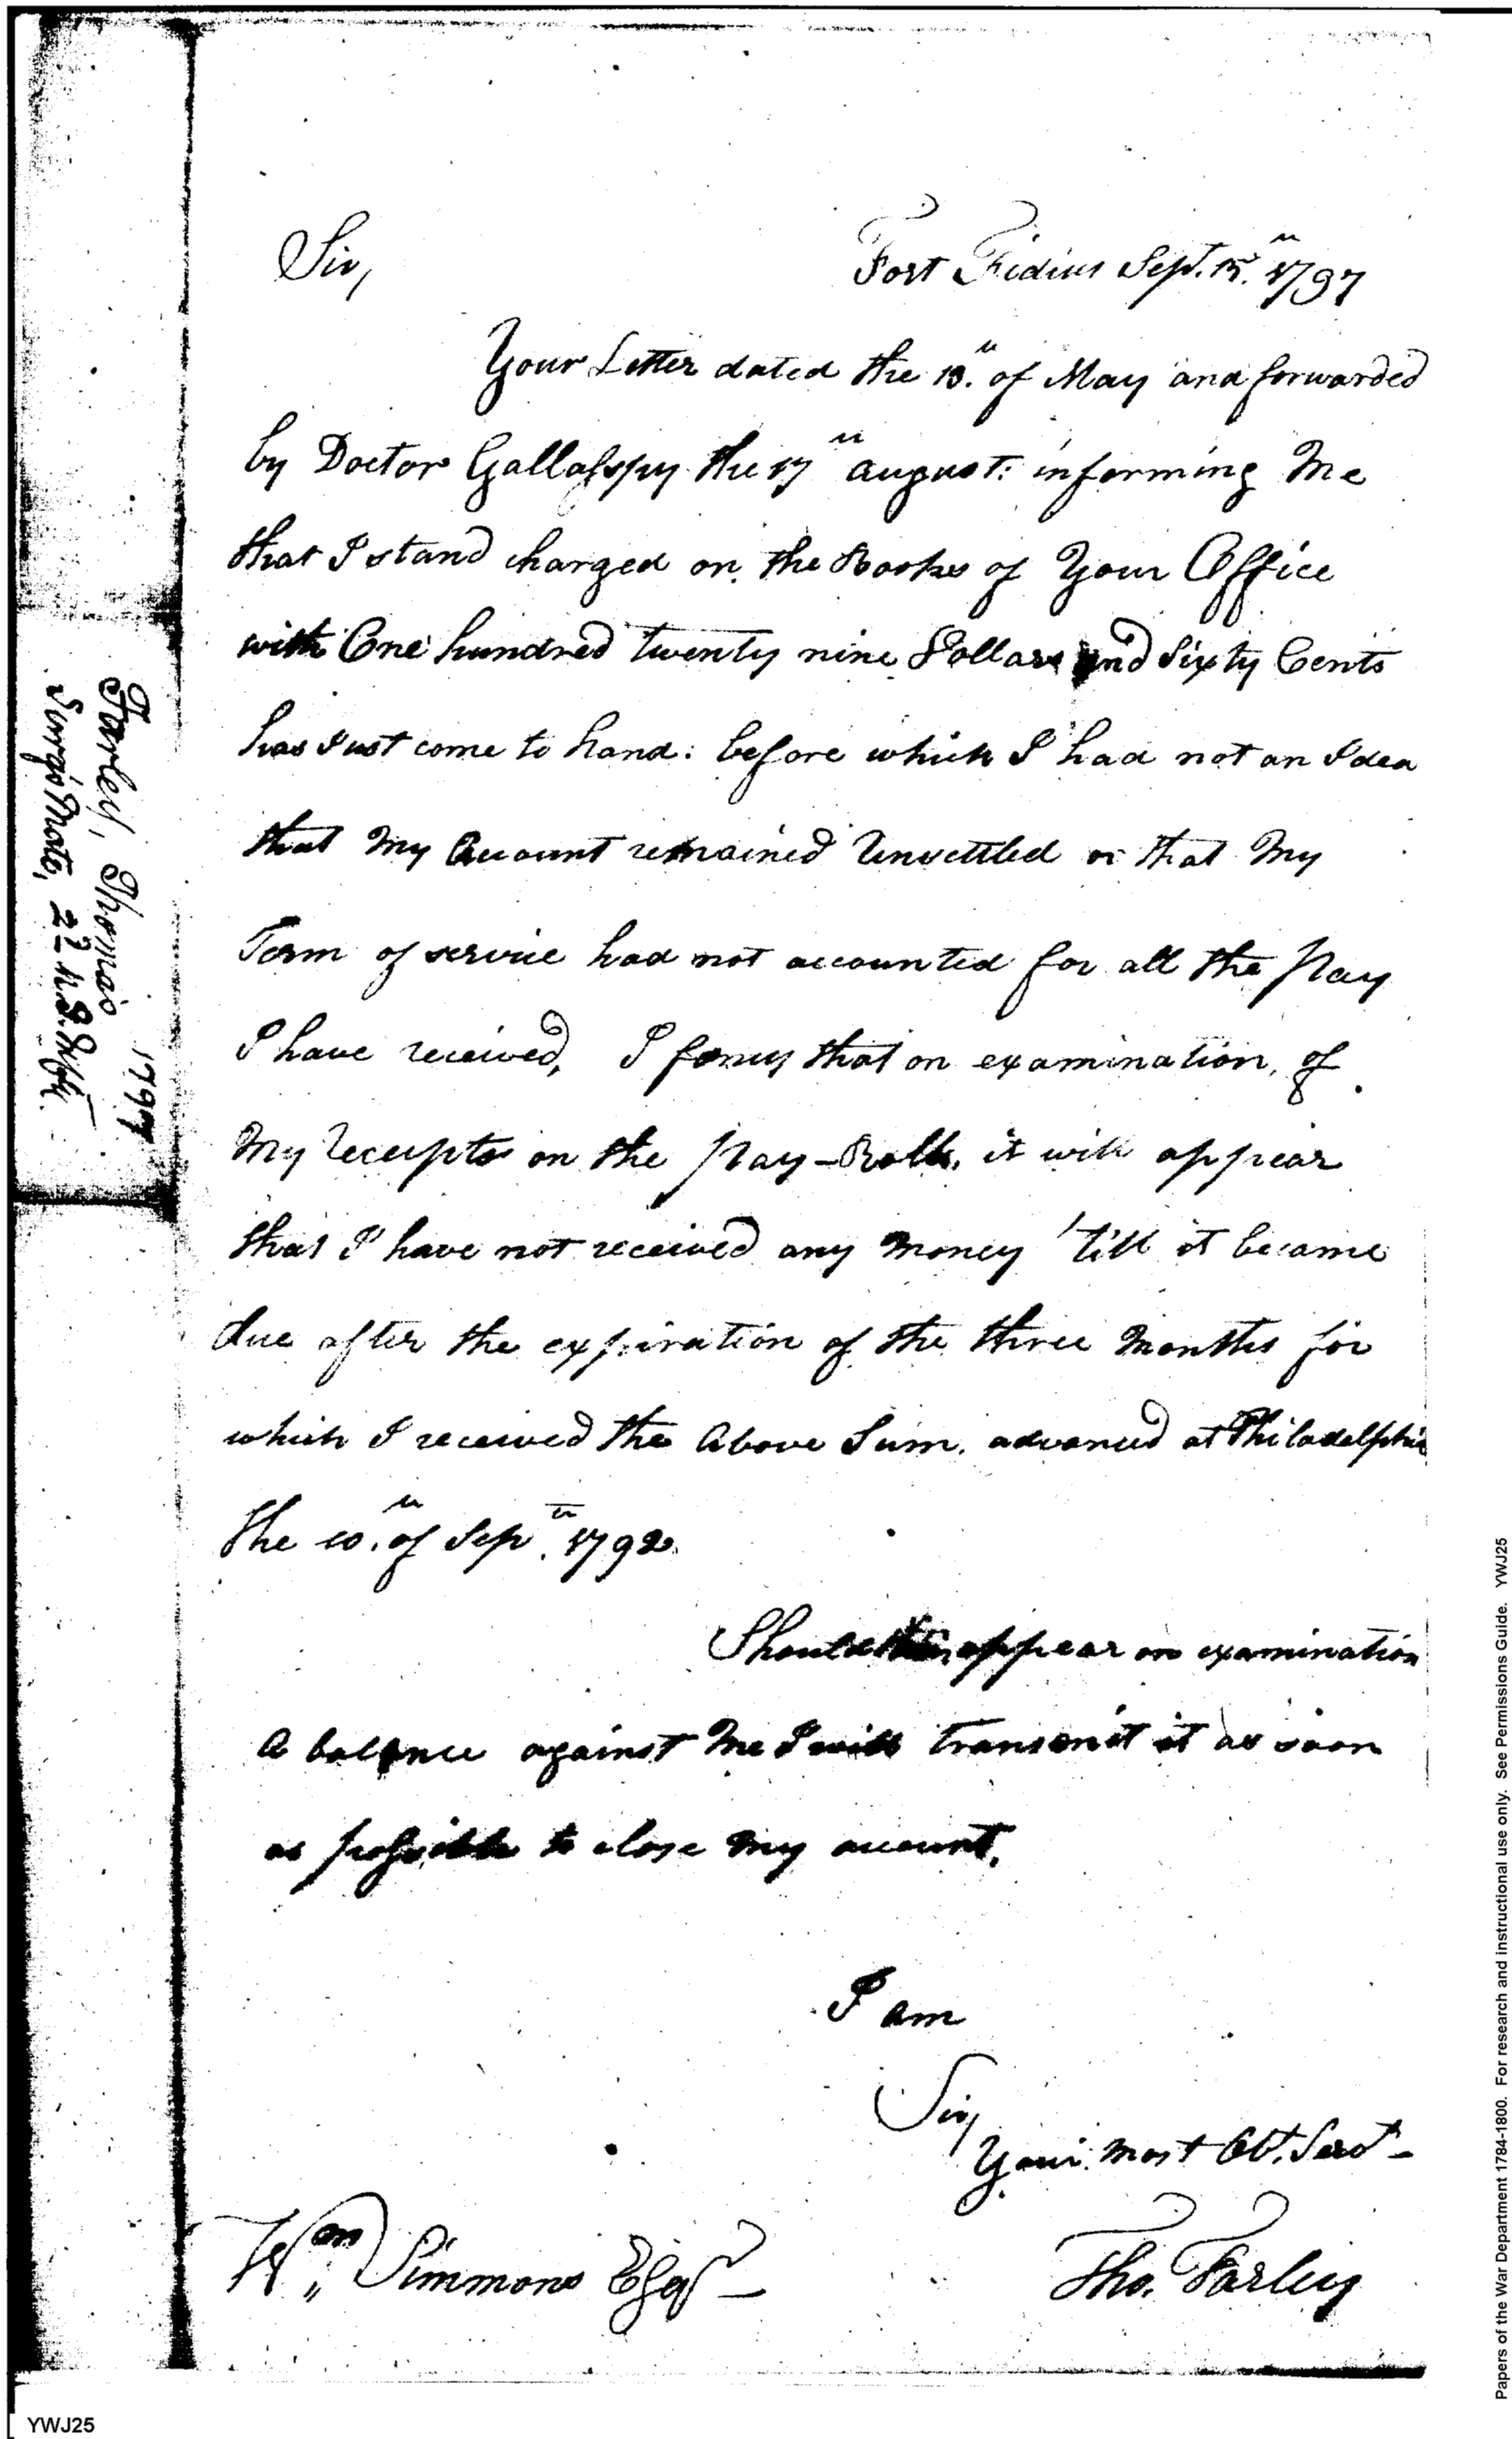 Sir,
Fort Fidius Sept. 15.th 1797
Your Letter dated the 18.th of May and forwarded
by Doctor Gallasspy the 17th august: informing Me
that I stand charged on the Books of Your Office
with One hundred twenty nine Dollars and Sixty Cents
has Just come to hand: before which I had not an Idea
that My Account remained Unsettled or that My
Term of service had not accounted for all the pay
I have received, I fancy that on examination, of
My receipts on the pay-Rolls, it will appear
that I have not received any Money 'till it became
due after the expiration of the three Months for
which I received the Above Sum, advanced at Philadelphia
the 10.th of Sep. 1792.
Should appear on examination
A balance against Me I will transmit it as soon
as possible to close My account.
I am
Sir,
Your Most Obt. Servt
Wm Simmons Esqr
Tho. Farley
Farley, Thomas 1797
Surgs Mate, 2d
YWJ25
Papers of the War Department 1784-1800. For research and instructional use only. See Permissions Guide. YWJ25